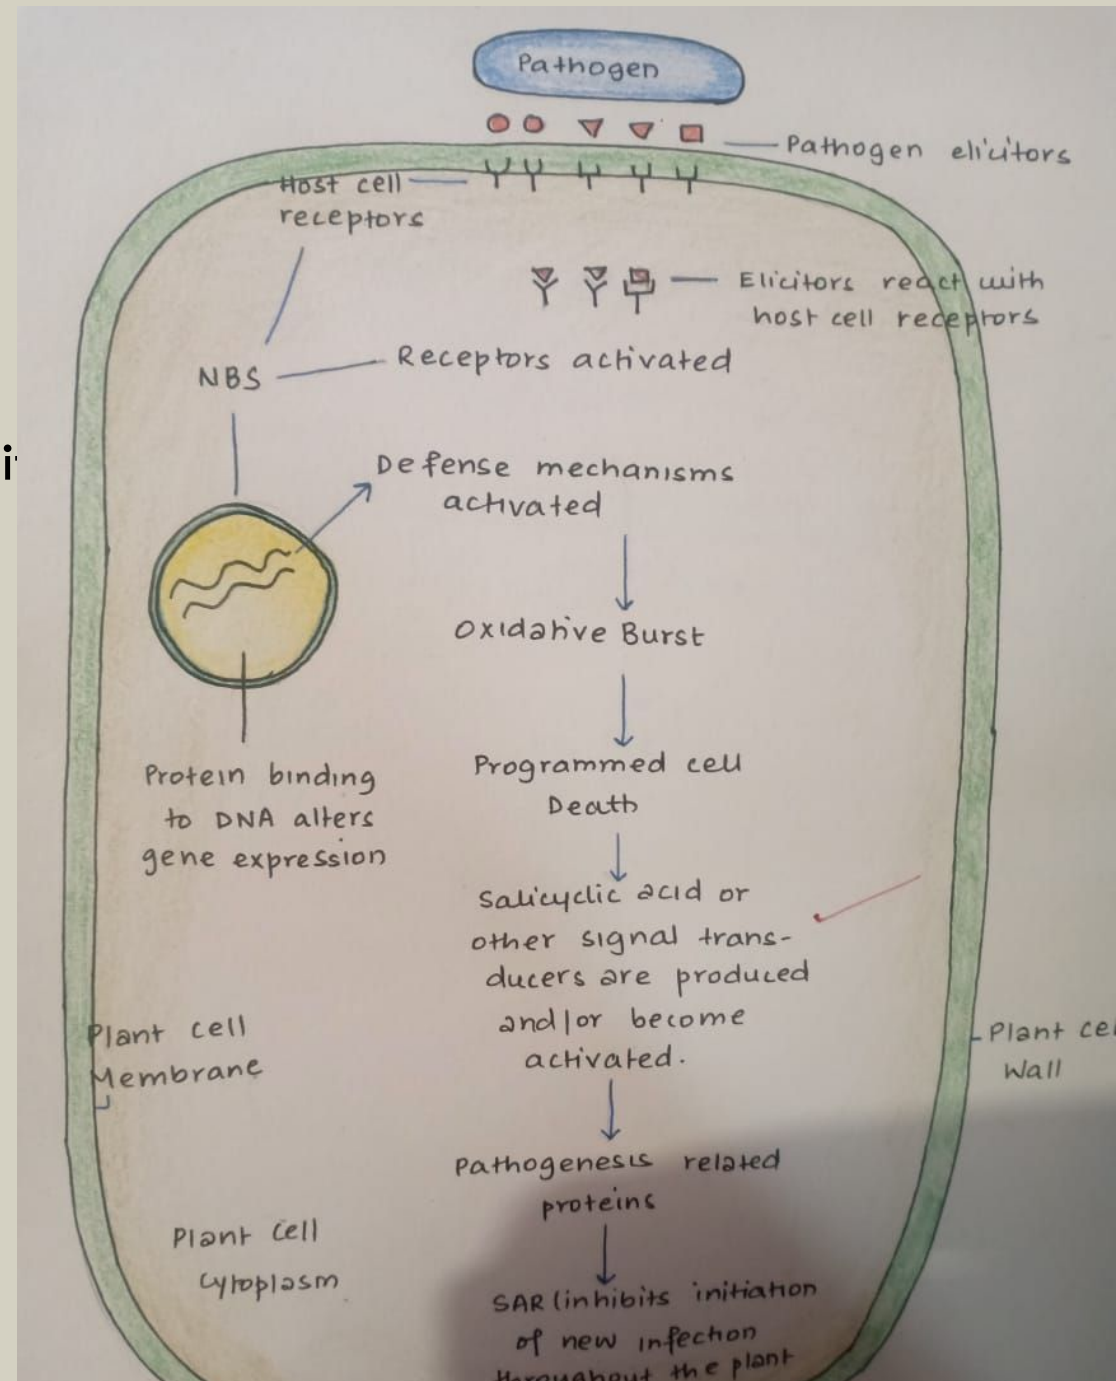 Pathogen
Pathogen elicitors
Host cell
receptors
Elicitors react with
host cell receptors
NBS
Receptors activated
Defense mechanisms
activated
Oxidative Burst
Programmed cell
Death
Protein binding
to DNA alters
gene expression
Salicyclic acid or
other signal trans-
ducers are produced
and/or become
activated.
Plant cell
Membrane
Plant ce
Wall
Pathogenesis related
proteins
Plant Cell
Cytoplasm
SAR (inhibits initiation
of new infection
throughout the plant